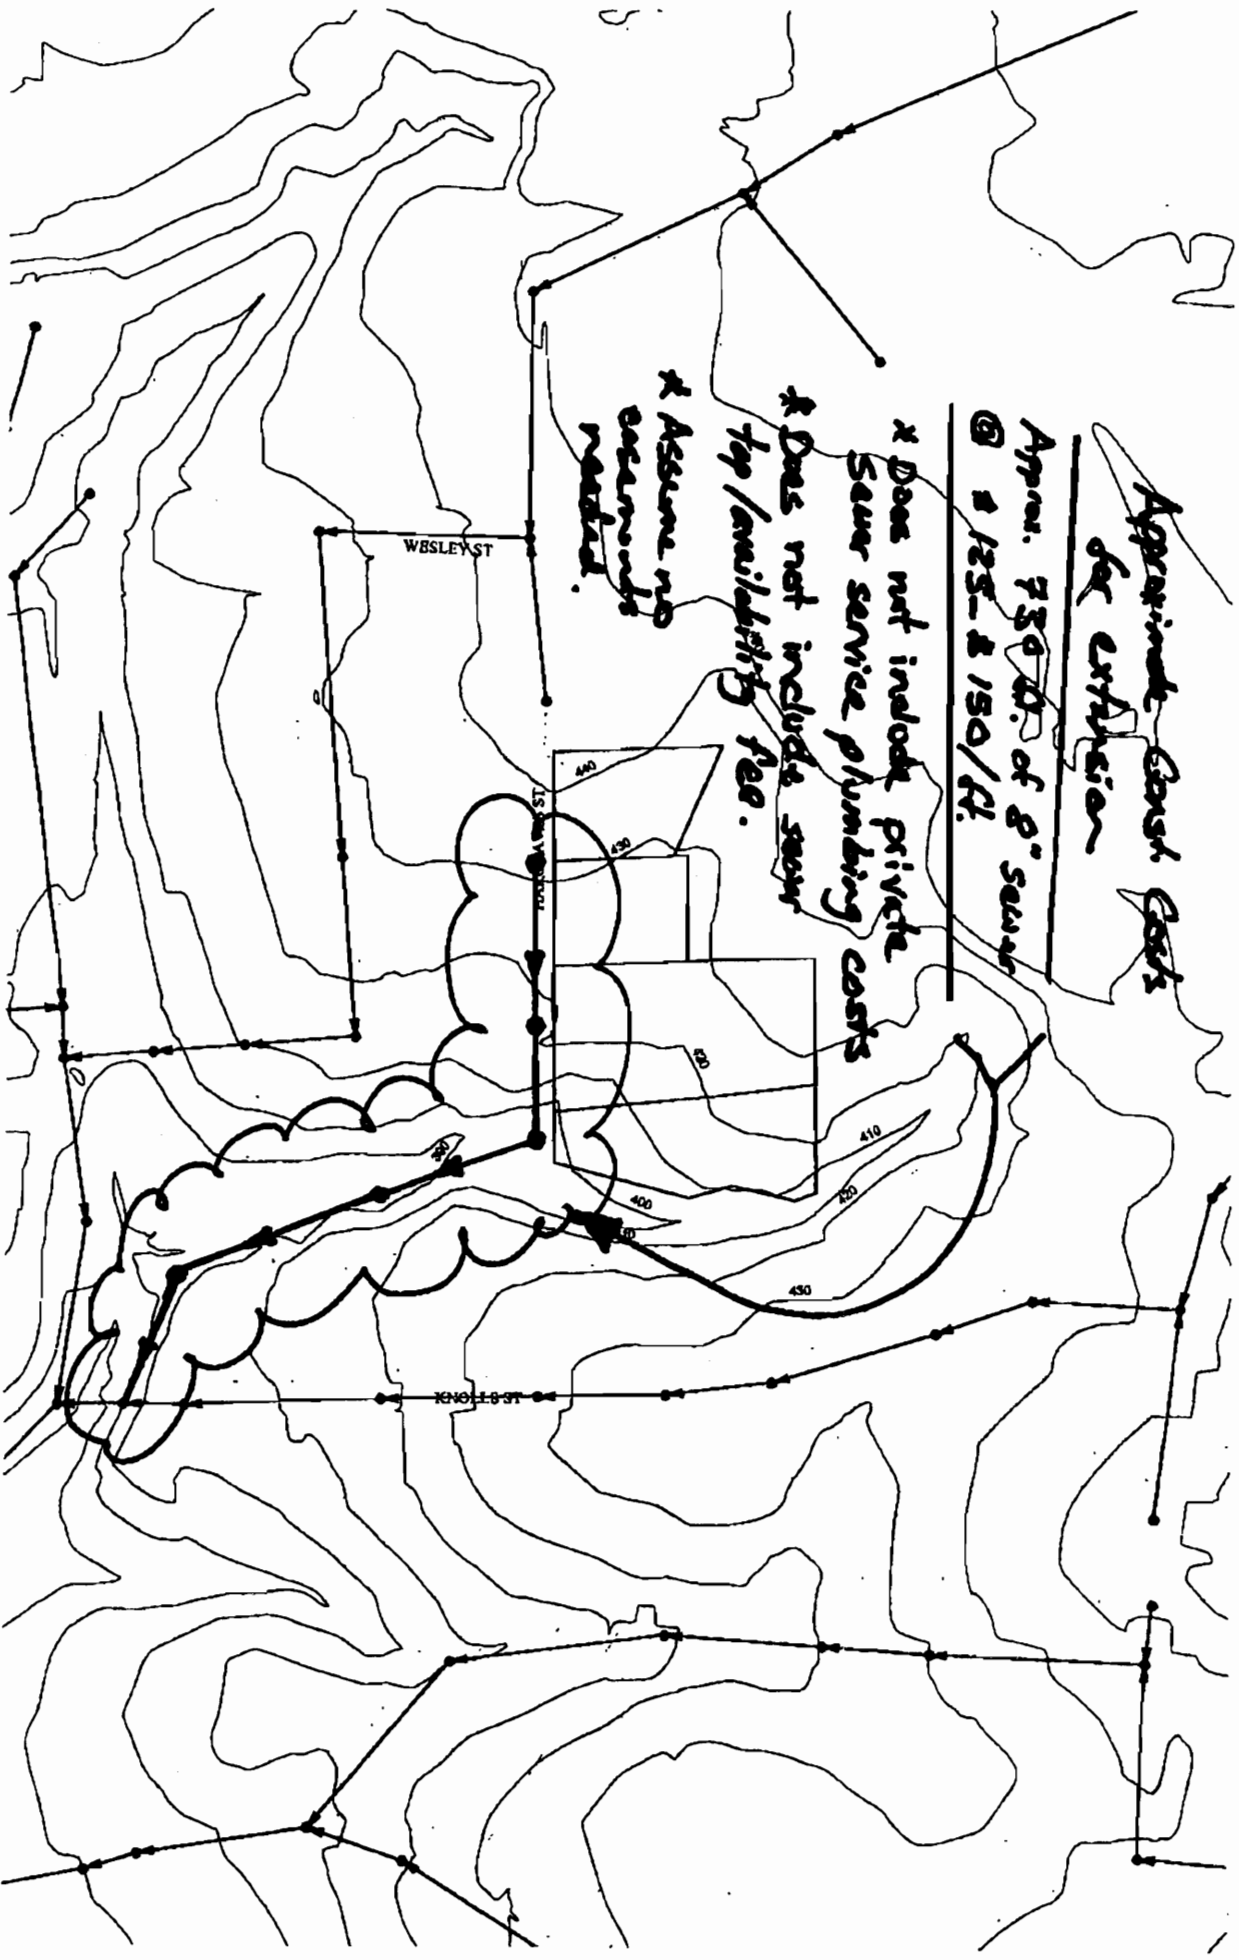 Approximate Const. Costs
for extension
Approx. 730 LF. of 8" sewer
@ $125-$150/ft.
* Does not include private
sewer service plumbing costs
* Does not include sewer
tap/availability fee.
* Assume no
easements
needed.
WESLEY ST
ST
KNOLLS ST
440
430
420
410
420
400
390
430